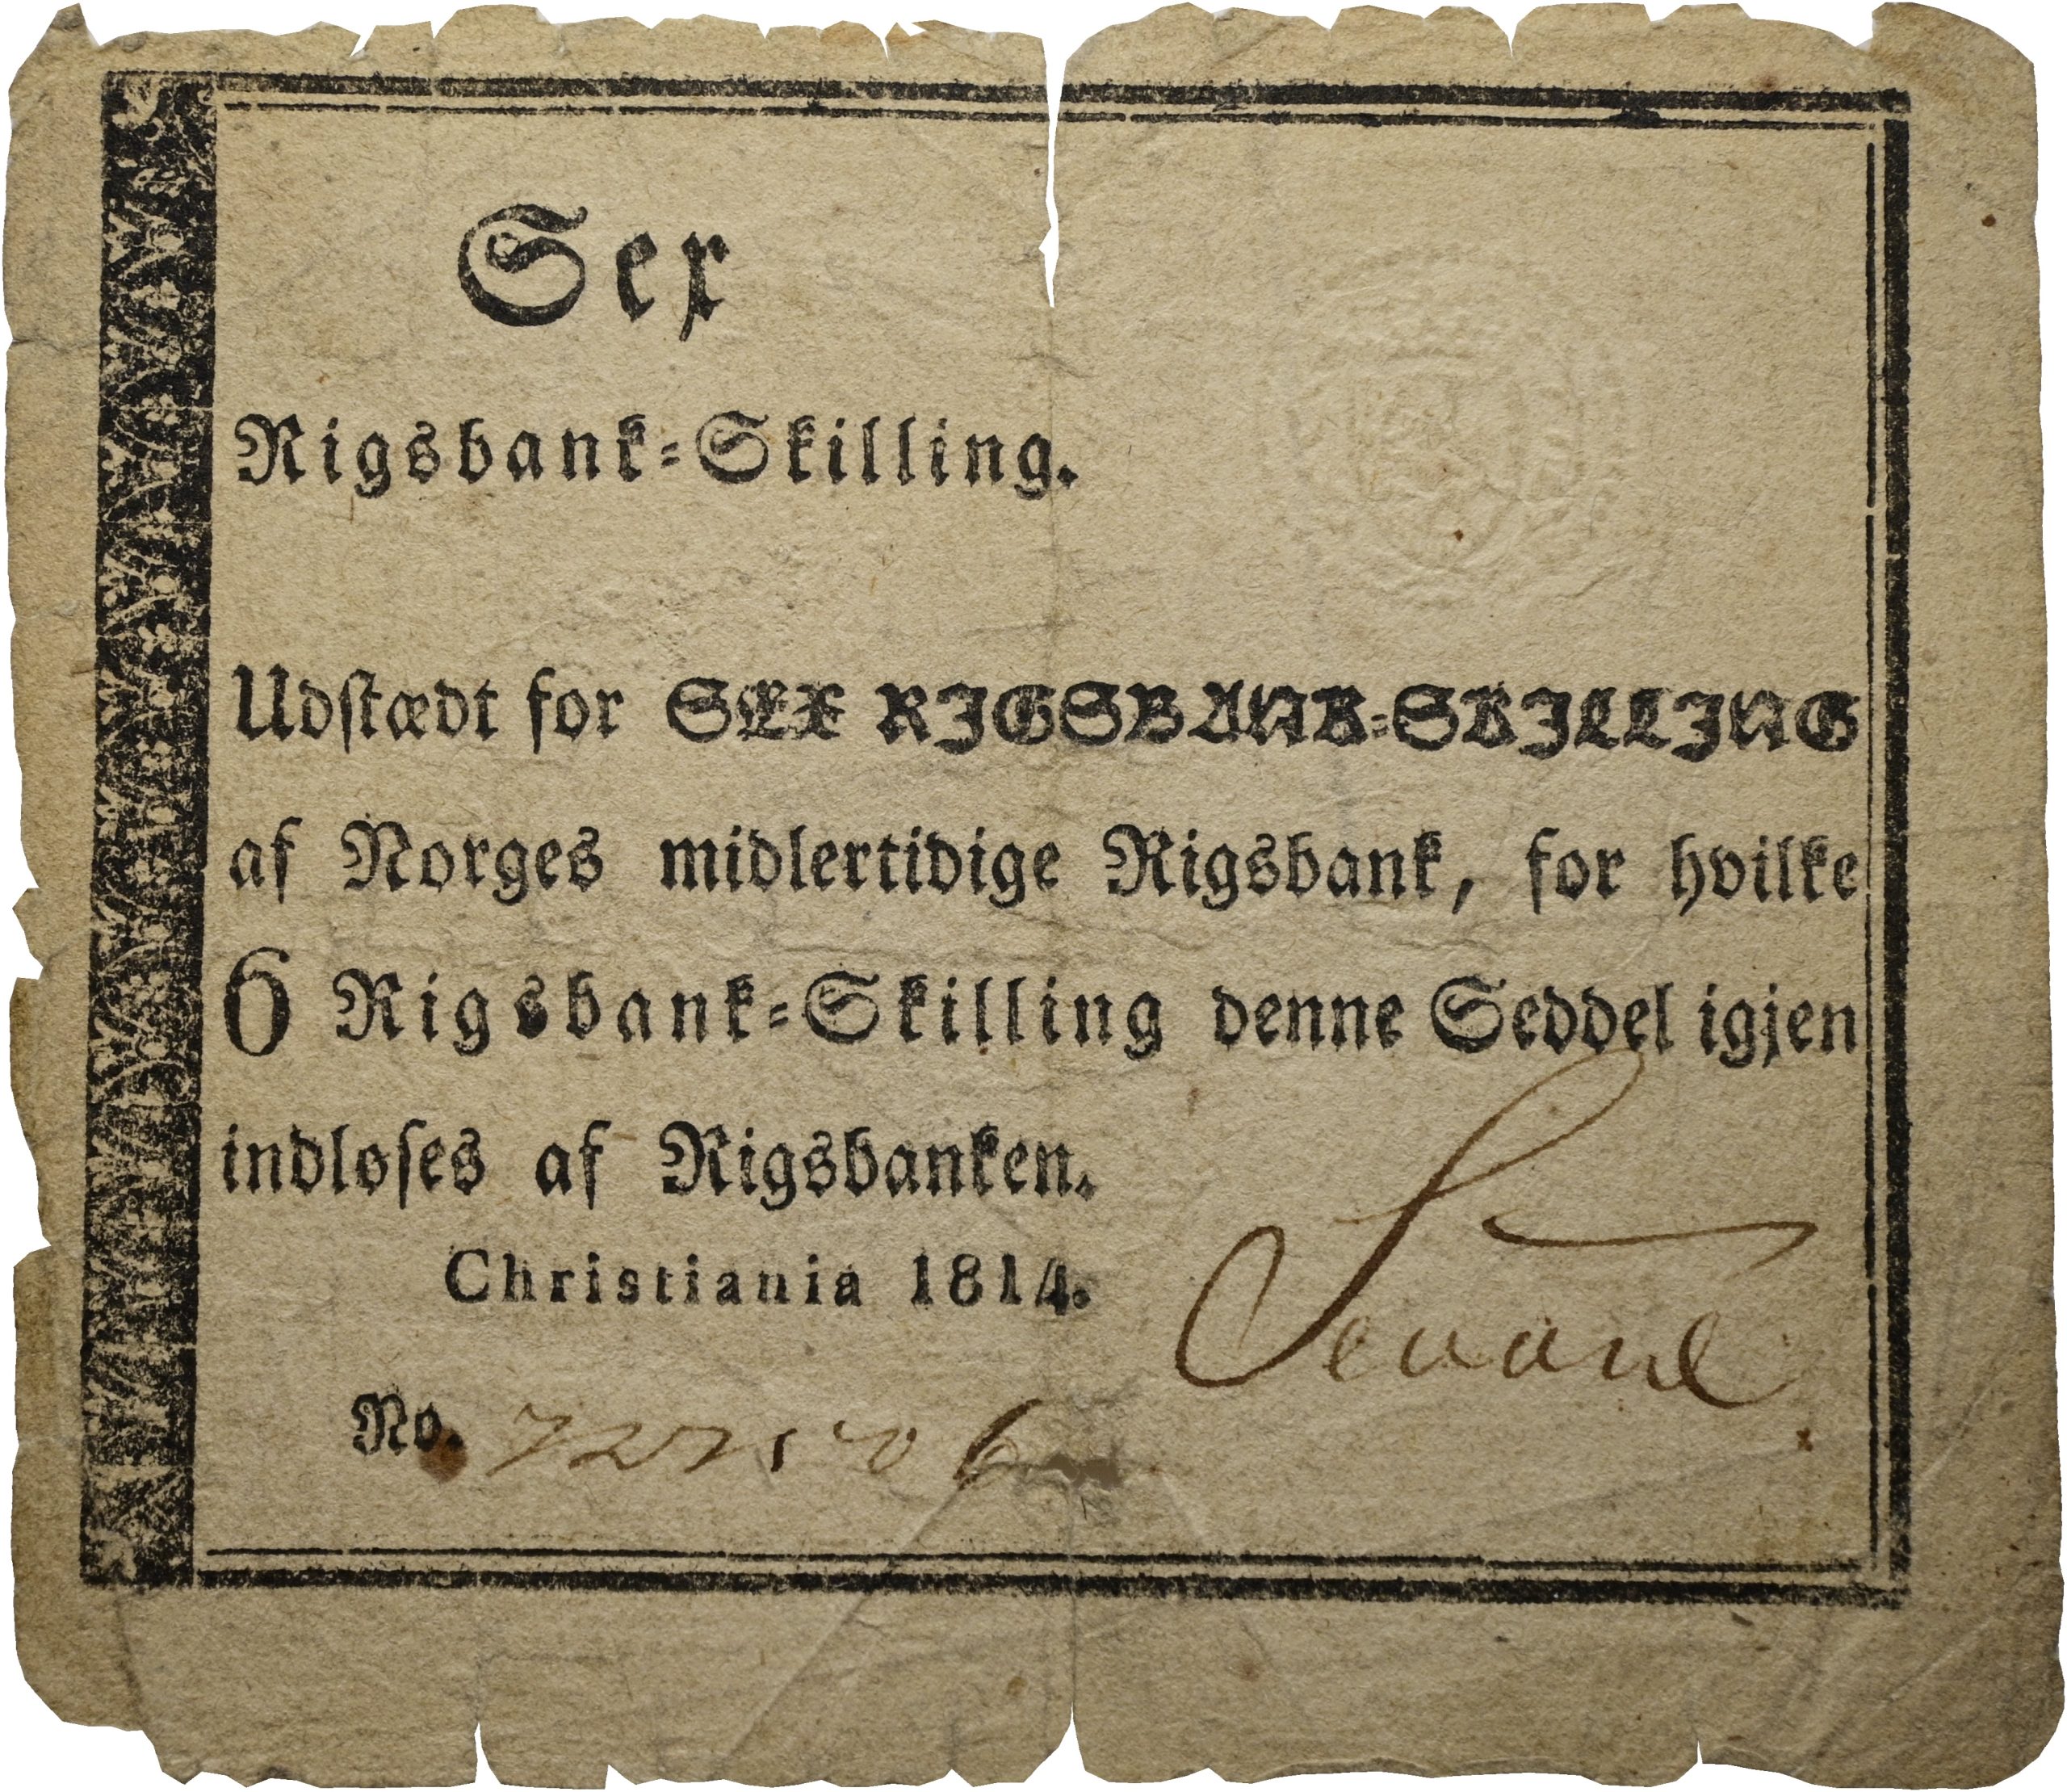 Sex
Rigsbank-Skilling.
Udstædt for SEX RIGSBANK-SKILLING
af Norges midlertidige Rigsbank, for hvilke
6 Rigsbank-Skilling denne Seddel igjen
indløses af Rigsbanken.
Christiania 1814.
No.